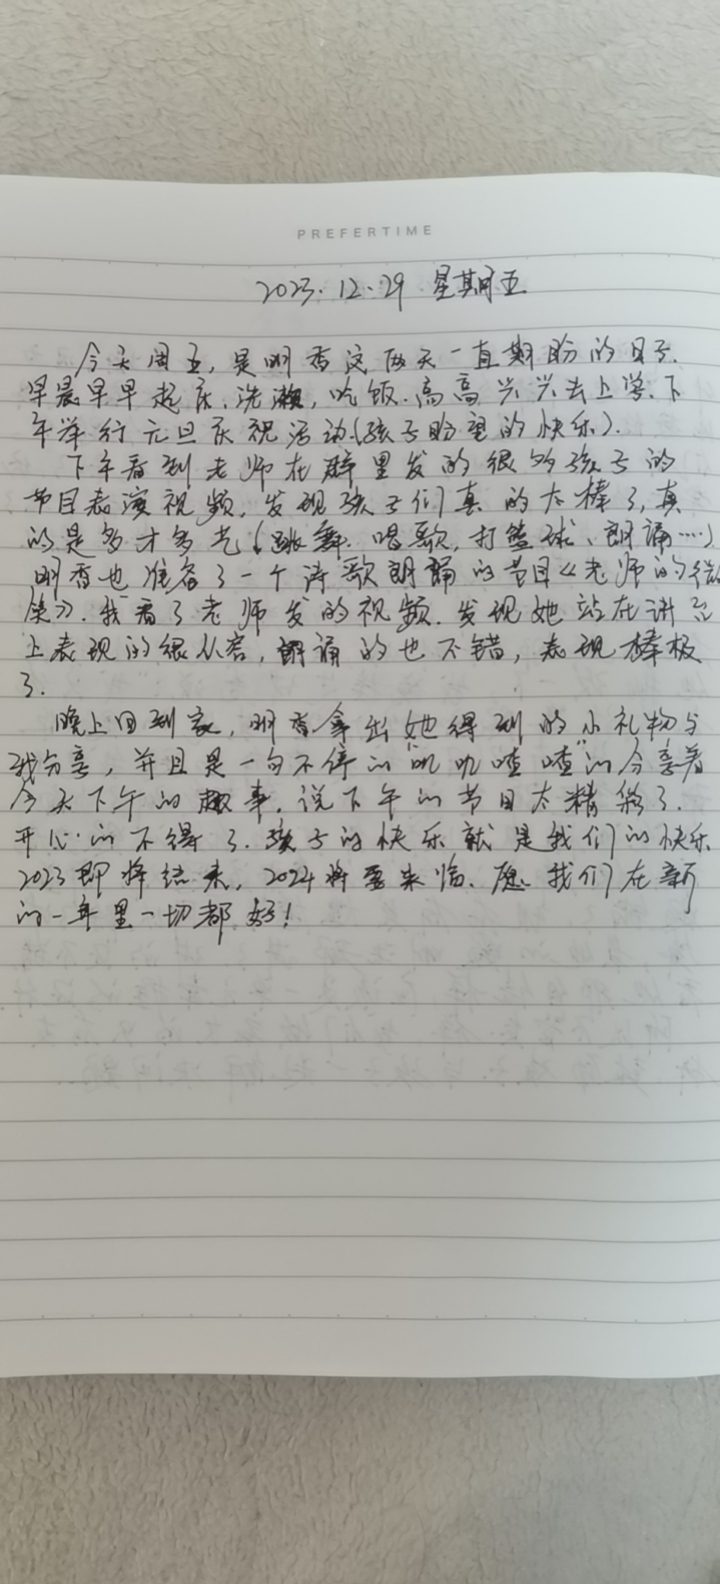 PREFERTIME
2023.12.29 星期五
今天周五,是明香这两天一直期盼的日子.
早晨早早起床,洗漱,吃饭.高高兴兴去上学.下
午举行元旦庆祝活动.(孩子盼望的快乐).
下午看到老师在群里发的很多孩子的
节目表演视频,发现孩子们真的太棒了,真
的是多才多艺(跳舞.唱歌,打篮球、朗诵……)
明香也准备了一个诗歌朗诵的节目《老师的微
笑》.我看了老师发的视频.发现她站在讲台
上表现的很从容,朗诵的也不错,表现棒极
了.
晚上回到家,明香拿出她得到的小礼物与
我分享,并且是一句不停的"叽叽喳喳"的分享着
今天下午的趣事.说下午的节目太精彩了.
开心的不得了.孩子的快乐就是我们的快乐
2023即将结束,2024将要来临.愿我们在新
的一年里一切都好!